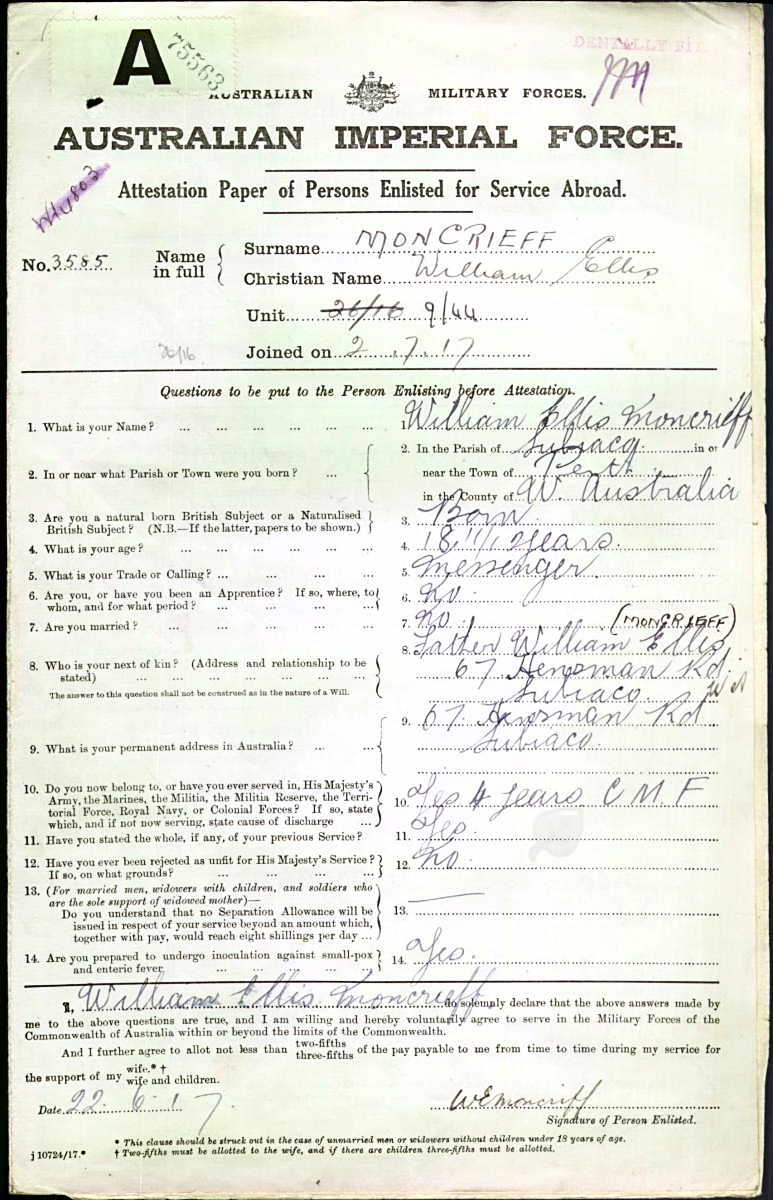 A
75563
DENTALLY FIT.
AUSTRALIAN MILITARY FORCES.
AUSTRALIAN IMPERIAL FORCE.
Attestation Paper of Persons Enlisted for Service Abroad.
No. 3585
Name in full
Surname MONCRIEFF
Christian Name William Ellis
Unit 26/16 9/44
26/16
Joined on 2.7.17
Questions to be put to the Person Enlisting before Attestation.
1. What is your Name? ... 1. William Ellis Moncrieff
2. In or near what Parish or Town were you born? ... 2. In the Parish of Subiaco in or
near the Town of Perth
in the County of W. Australia
3. Are you a natural born British Subject or a Naturalised
British Subject? (N.B.—If the latter, papers to be shown.) 3. Born
4. What is your age? ... 4. 18 11/12 years.
5. What is your Trade or Calling? ... 5. Messenger.
6. Are you, or have you been an Apprentice? If so, where, to
whom, and for what period? ... 6. No
7. Are you married? ... 7. No (MONCRIEFF)
8. Who is your next of kin? (Address and relationship to be
stated) ... 8. Father William Ellis
67 Hensman Rd.
Subiaco. W A
The answer to this question shall not be construed as in the nature of a Will.
9. What is your permanent address in Australia? ... 9. 67 Hensman Rd
Subiaco.
10. Do you now belong to, or have you ever served in, His Majesty's
Army, the Marines, the Militia, the Militia Reserve, the Terri-
torial Force, Royal Navy, or Colonial Forces? If so, state
which, and if not now serving, state cause of discharge ... 10. Yes 4 years C M F
11. Have you stated the whole, if any, of your previous Service? 11. Yes
12. Have you ever been rejected as unfit for His Majesty's Service?
If so, on what grounds? ... 12. No
13. (For married men, widowers with children, and soldiers who
are the sole support of widowed mother)—
Do you understand that no Separation Allowance will be
issued in respect of your service beyond an amount which,
together with pay, would reach eight shillings per day ... 13. —
14. Are you prepared to undergo inoculation against small-pox
and enteric fever ... 14. Yes.
I, William Ellis Moncrieff do solemnly declare that the above answers made by
me to the above questions are true, and I am willing and hereby voluntarily agree to serve in the Military Forces of the
Commonwealth of Australia within or beyond the limits of the Commonwealth.
And I further agree to allot not less than two-fifths three-fifths of the pay payable to me from time to time during my service for
the support of my wife.* † wife and children.
Date 22.6.17.
WEMoncriff
Signature of Person Enlisted.
* This clause should be struck out in the case of unmarried men or widowers without children under 18 years of age.
j 10724/17.* † Two-fifths must be allotted to the wife, and if there are children three-fifths must be allotted.